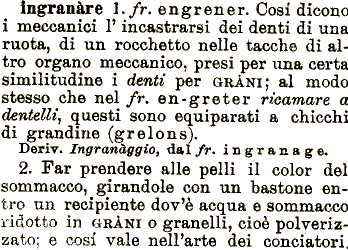 ingranàre 1. fr. engrener. Cosí dicono
i meccanici l' incastrarsi dei denti di una
ruota, di un rocchetto nelle tacche di al-
tro organo meccanico, presi per una certa
similitudine i denti per GRÀNI; al modo
stesso che nel fr. en-greter ricamare a
dentelli, questi sono equiparati a chicchi
di grandine (grelons).
Deriv. Ingranàggio, dal fr. ingranage.
2. Far prendere alle pelli il color del
sommacco, girandole con un bastone en-
tro un recipiente dov'è acqua e sommacco
ridotto in GRÀNI o granelli, cioè polveriz-
zato; e cosí vale nell'arte dei conciatori.